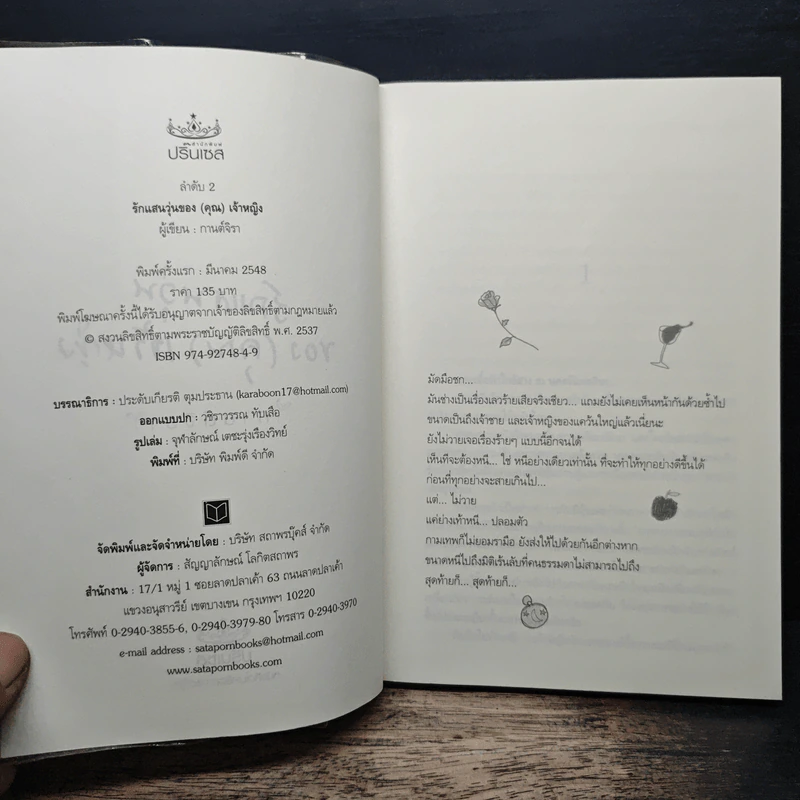 สำนักพิมพ์
ปริ๊นเซส
ลำดับ 2
รักแสนวุ่นของ (คุณ) เจ้าหญิง
ผู้เขียน : กานต์จิรา
พิมพ์ครั้งแรก : มีนาคม 2548
ราคา 135 บาท
พิมพ์โฆษณาครั้งนี้ได้รับอนุญาตจากเจ้าของลิขสิทธิ์ตามกฎหมายแล้ว
© สงวนลิขสิทธิ์ตามพระราชบัญญัติลิขสิทธิ์ พ.ศ. 2537
ISBN 974-92748-4-9
บรรณาธิการ : ประดับเกียรติ ตุมประธาน (karaboon17@hotmail.com)
ออกแบบปก : วชิราวรรณ ทับเสือ
รูปเล่ม : จุฬาลักษณ์ เตชะรุ่งเรืองวิทย์
พิมพ์ที่ : บริษัท พิมพ์ดี จำกัด
จัดพิมพ์และจัดจำหน่ายโดย : บริษัท สถาพรบุ๊คส์ จำกัด
ผู้จัดการ : สัญญาลักษณ์ โลกิตสถาพร
สำนักงาน : 17/1 หมู่ 1 ซอยลาดปลาเค้า 63 ถนนลาดปลาเค้า
แขวงอนุสาวรีย์ เขตบางเขน กรุงเทพฯ 10220
โทรศัพท์ 0-2940-3855-6, 0-2940-3979-80 โทรสาร 0-2940-3970
e-mail address : satapornbooks@hotmail.com
www.satapornbooks.com
มัดมือชก...
มันช่างเป็นเรื่องเลวร้ายเสียจริงเชียว... แถมยังไม่เคยเห็นหน้ากันด้วยซ้ำไป
ขนาดเป็นถึงเจ้าชาย และเจ้าหญิงของแคว้นใหญ่แล้วเนี่ยนะ
ยังไม่วายเจอเรื่องร้ายๆ แบบนี้อีกจนได้
เห็นทีจะต้องหนี... ใช่ หนีอย่างเดียวเท่านั้น ที่จะทำให้ทุกอย่างดีขึ้นได้
ก่อนที่ทุกอย่างจะสายเกินไป...
แต่... ไม่วาย
แค่ย่างเท้าหนี... ปลอมตัว
กามเทพก็ไม่ยอมรามือ ยังส่งให้ไปด้วยกันอีกต่างหาก
ขนาดหนีไปถึงมิติเร้นลับที่คนธรรมดาไม่สามารถไปถึง
สุดท้ายก็... สุดท้ายก็...